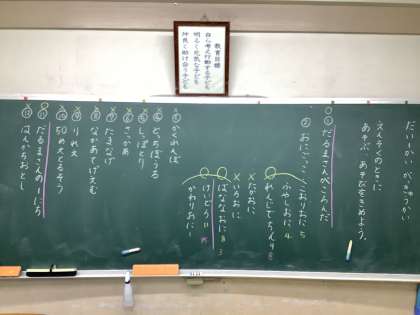 教育目標
自ら考え行動する子ども
明るく元気な子ども
仲良く助け合う子ども
だい一かい がっきゅうかい
えんそくのときに
あそぶ あそびをきめよう。
① だるまさんがころんだ
② おにごっこ
こおりおに 5
ふやしおに 4
れんぞくでちんう 8
たかおに
いろおに
ばななおに 8
3
けいどろ 11
15
かわりおに 1
③ かくれんぼ
④ どっちぼうる
⑤ しっぽとり
⑥ さっかあ
⑦ たまなげ
⑧ なかあてげえむ
⑨ りれえ
⑩ 50めえとるそう
⑪ だるまさんの一にち
⑫ はんかちおとし